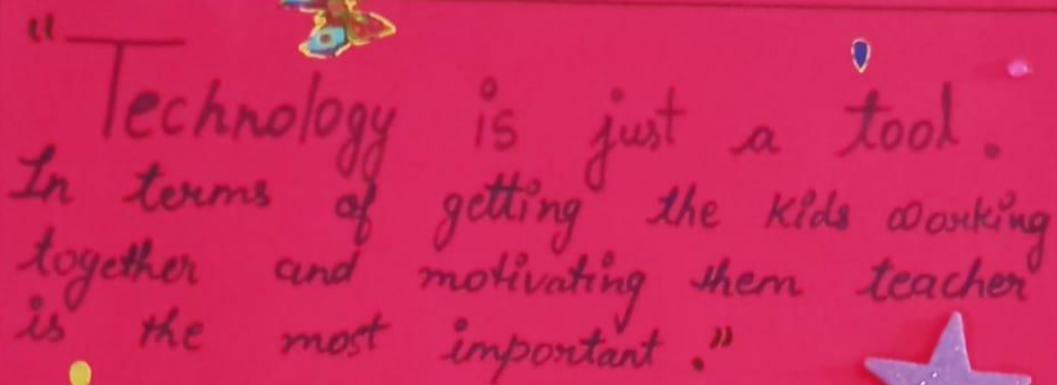 "Technology is just a tool.
In terms of getting the kids working
together and motivating them teacher
is the most important."